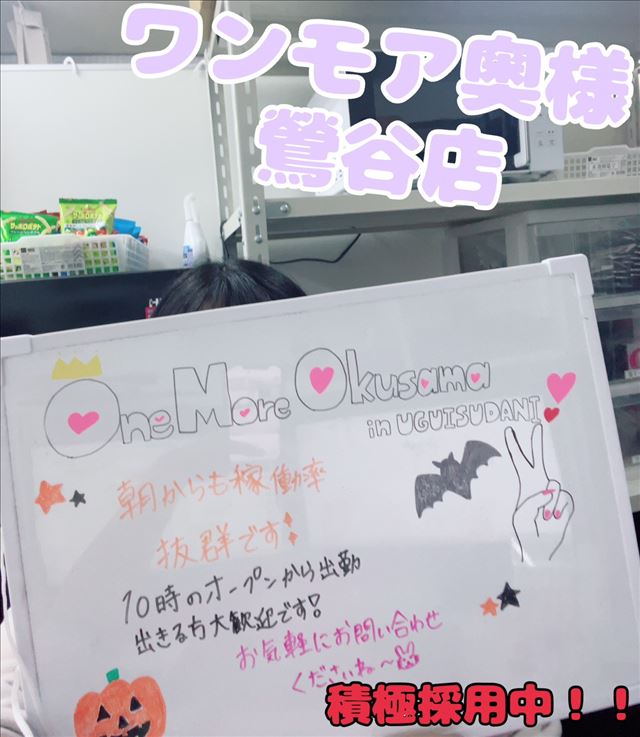 ワンモア奥様
鶯谷店
One More Okusama
in UGUISUDANI
朝からも稼働率
抜群です
10時のオープンから出勤
出きる方大歓迎です!
お気軽にお問い合わせ
くださいね〜
積極採用中！！